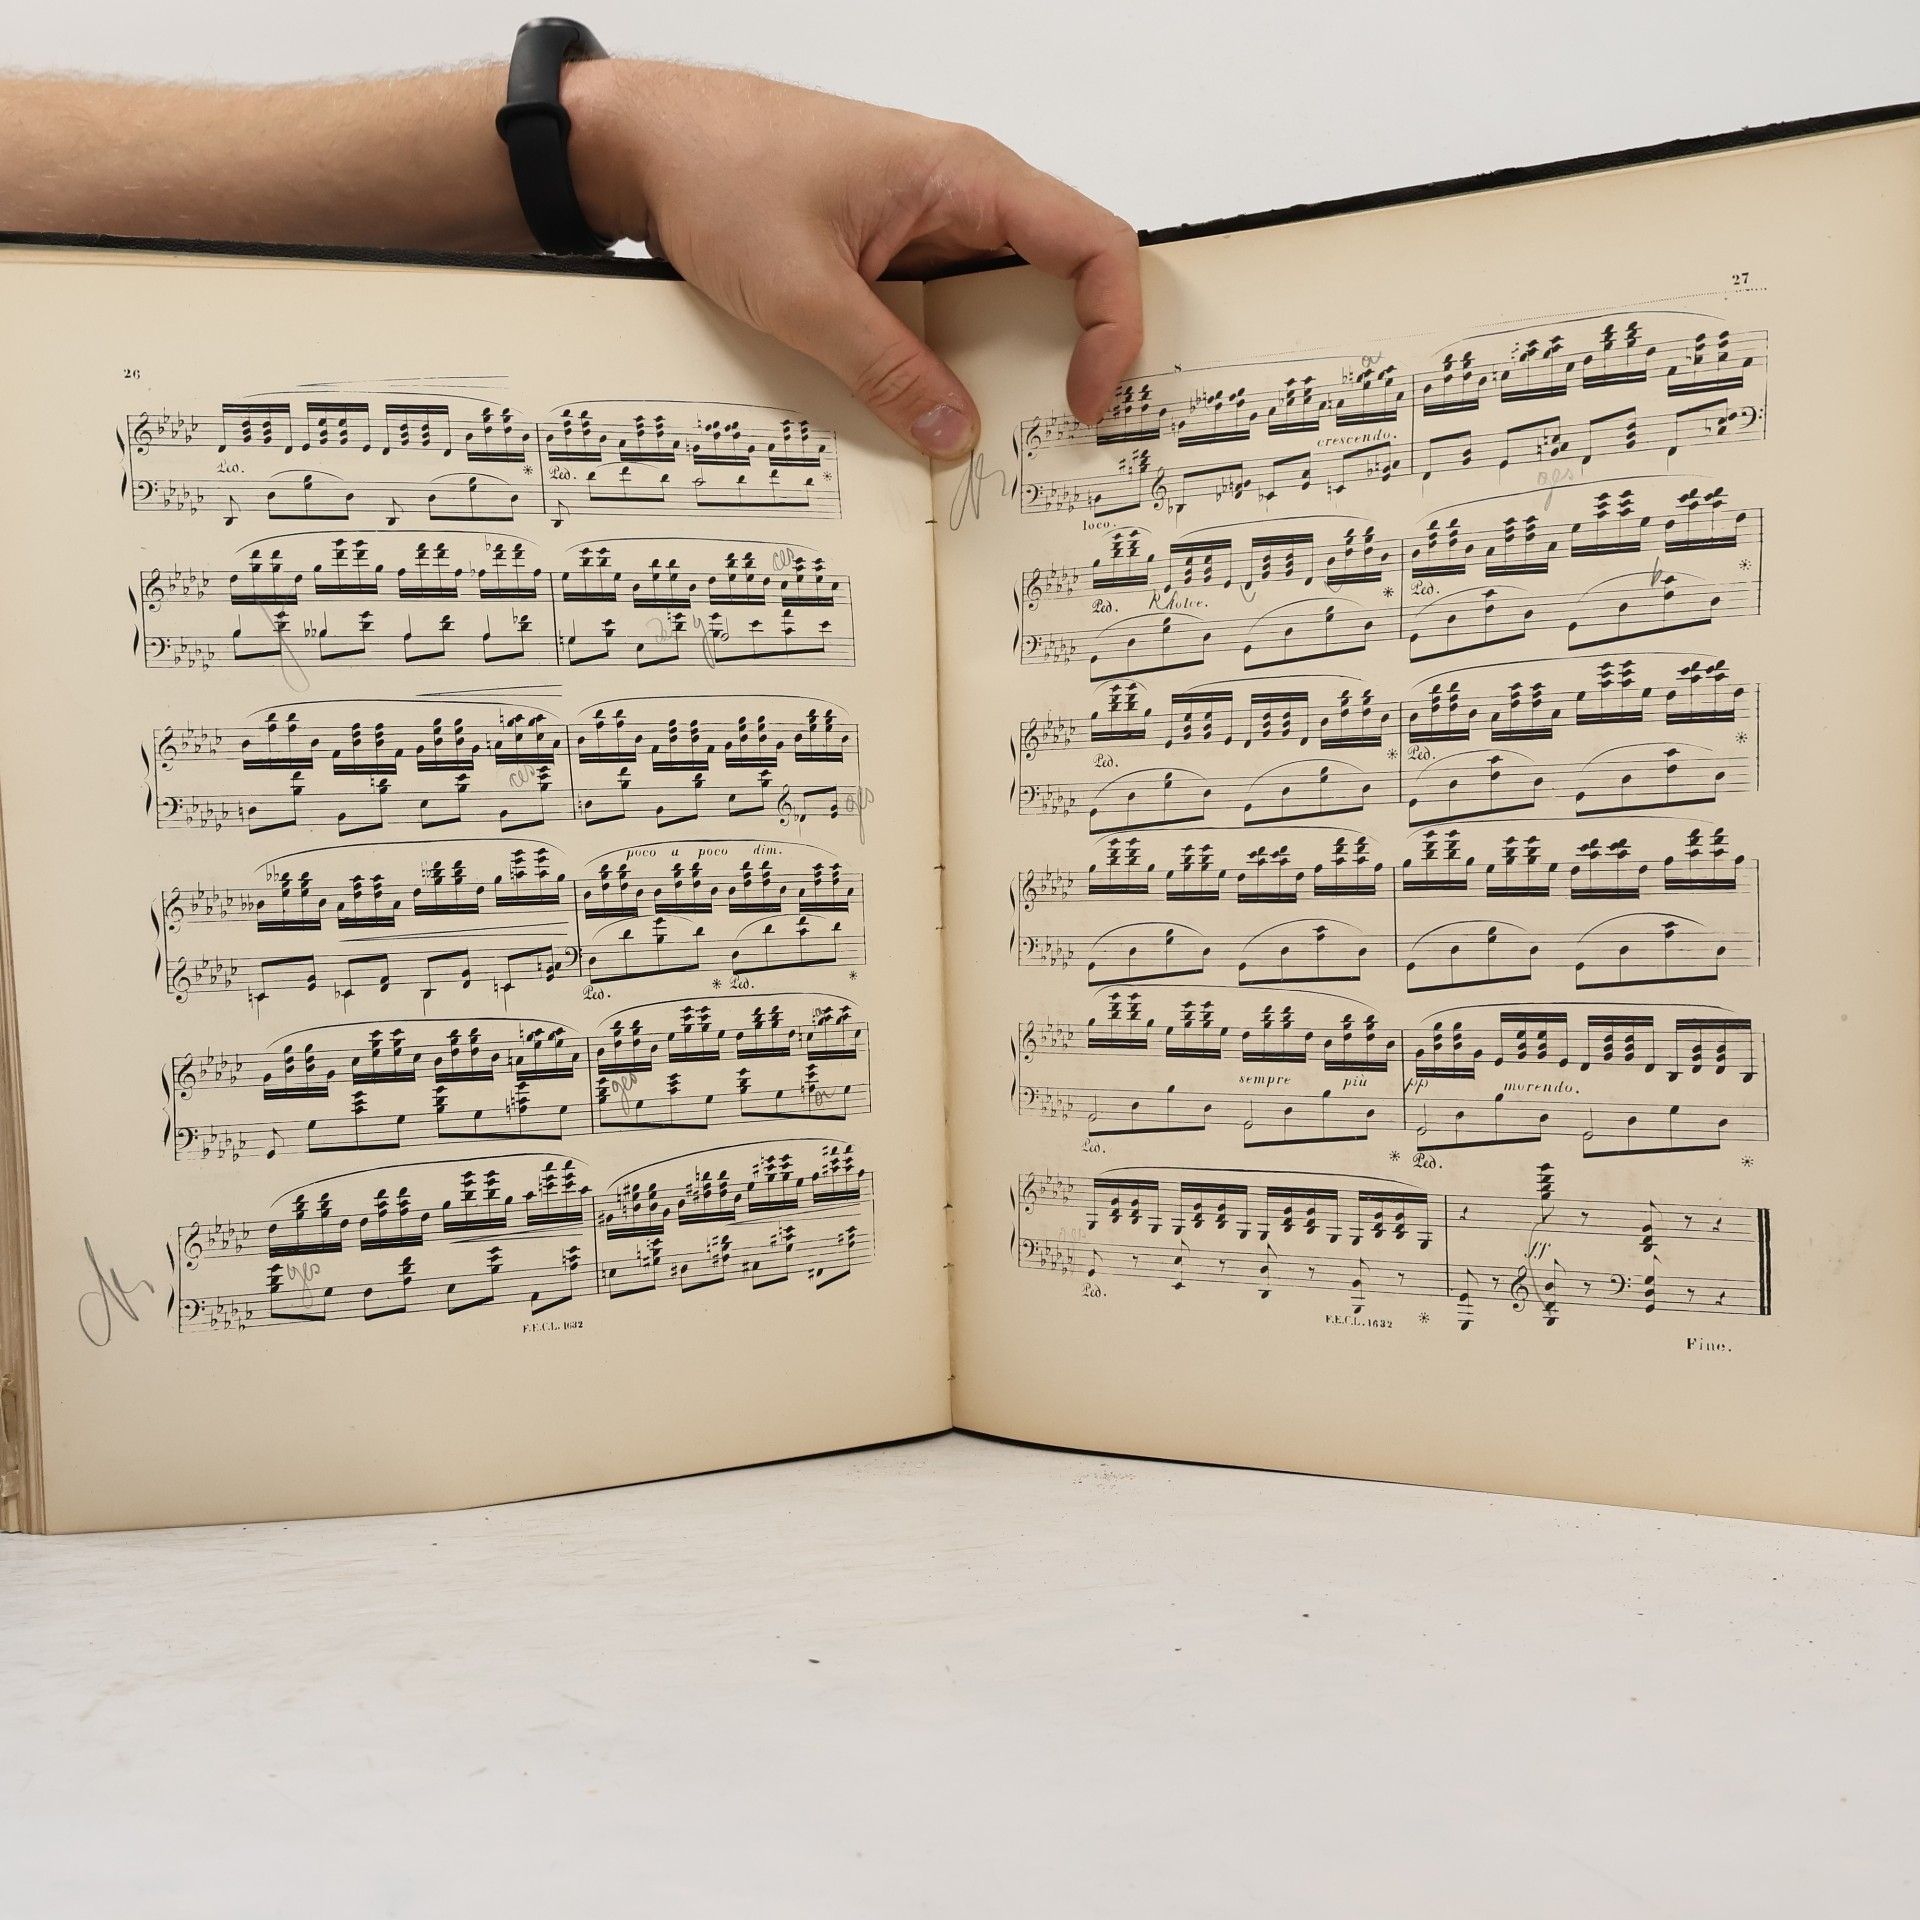 26
Ped. * Ped. *
ces
ces
ges
poco a poco dim.
Ped. * Ped. *
ges
ges
F.E.C.L. 1632
27
8
crescendo.
ges
loco.
Ped. dolce. * Ped. *
Ped. * Ped. *
sempre più pp morendo.
Ped. * Ped. *
sf
Ped. *
F.E.C.L. 1632
Fine.